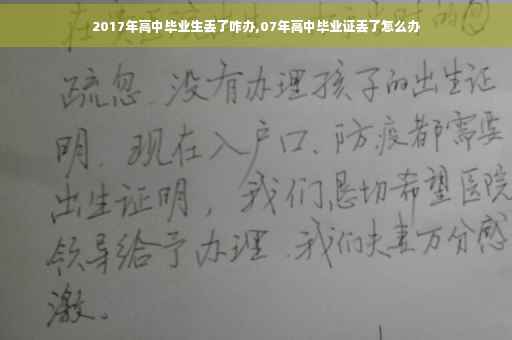 2017年高中毕业生丢了咋办,07年高中毕业证丢了怎么办
疏忽.没有办理孩子的出生证
明.现在入户口、防疫都需要
出生证明,我们恳切希望医院
领导给予办理.我们夫妻万分感
激。